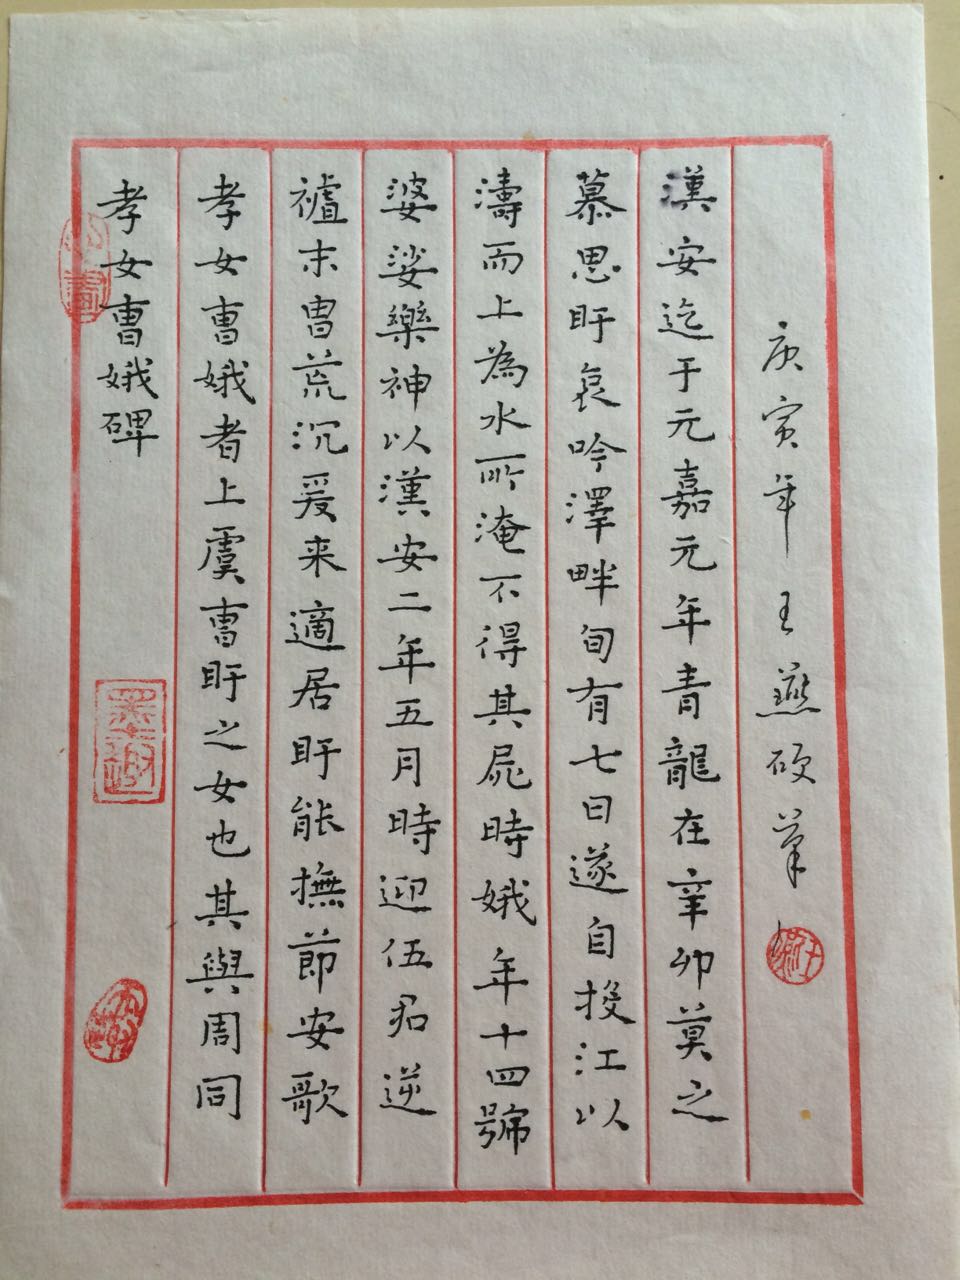 孝女曹娥碑
孝女曹娥者上虞曹盱之女也其與周同
末胄荒沉爰来適居盱能撫節安歌
婆娑樂神以漢安二年五月時迎伍君逆
濤而上為水所淹不得其屍時娥年十四號
慕思盱哀吟澤畔旬有七日遂自投江以
漢安迄于元嘉元年青龍在辛卯莫之
庚寅年王燕筆
墨趣